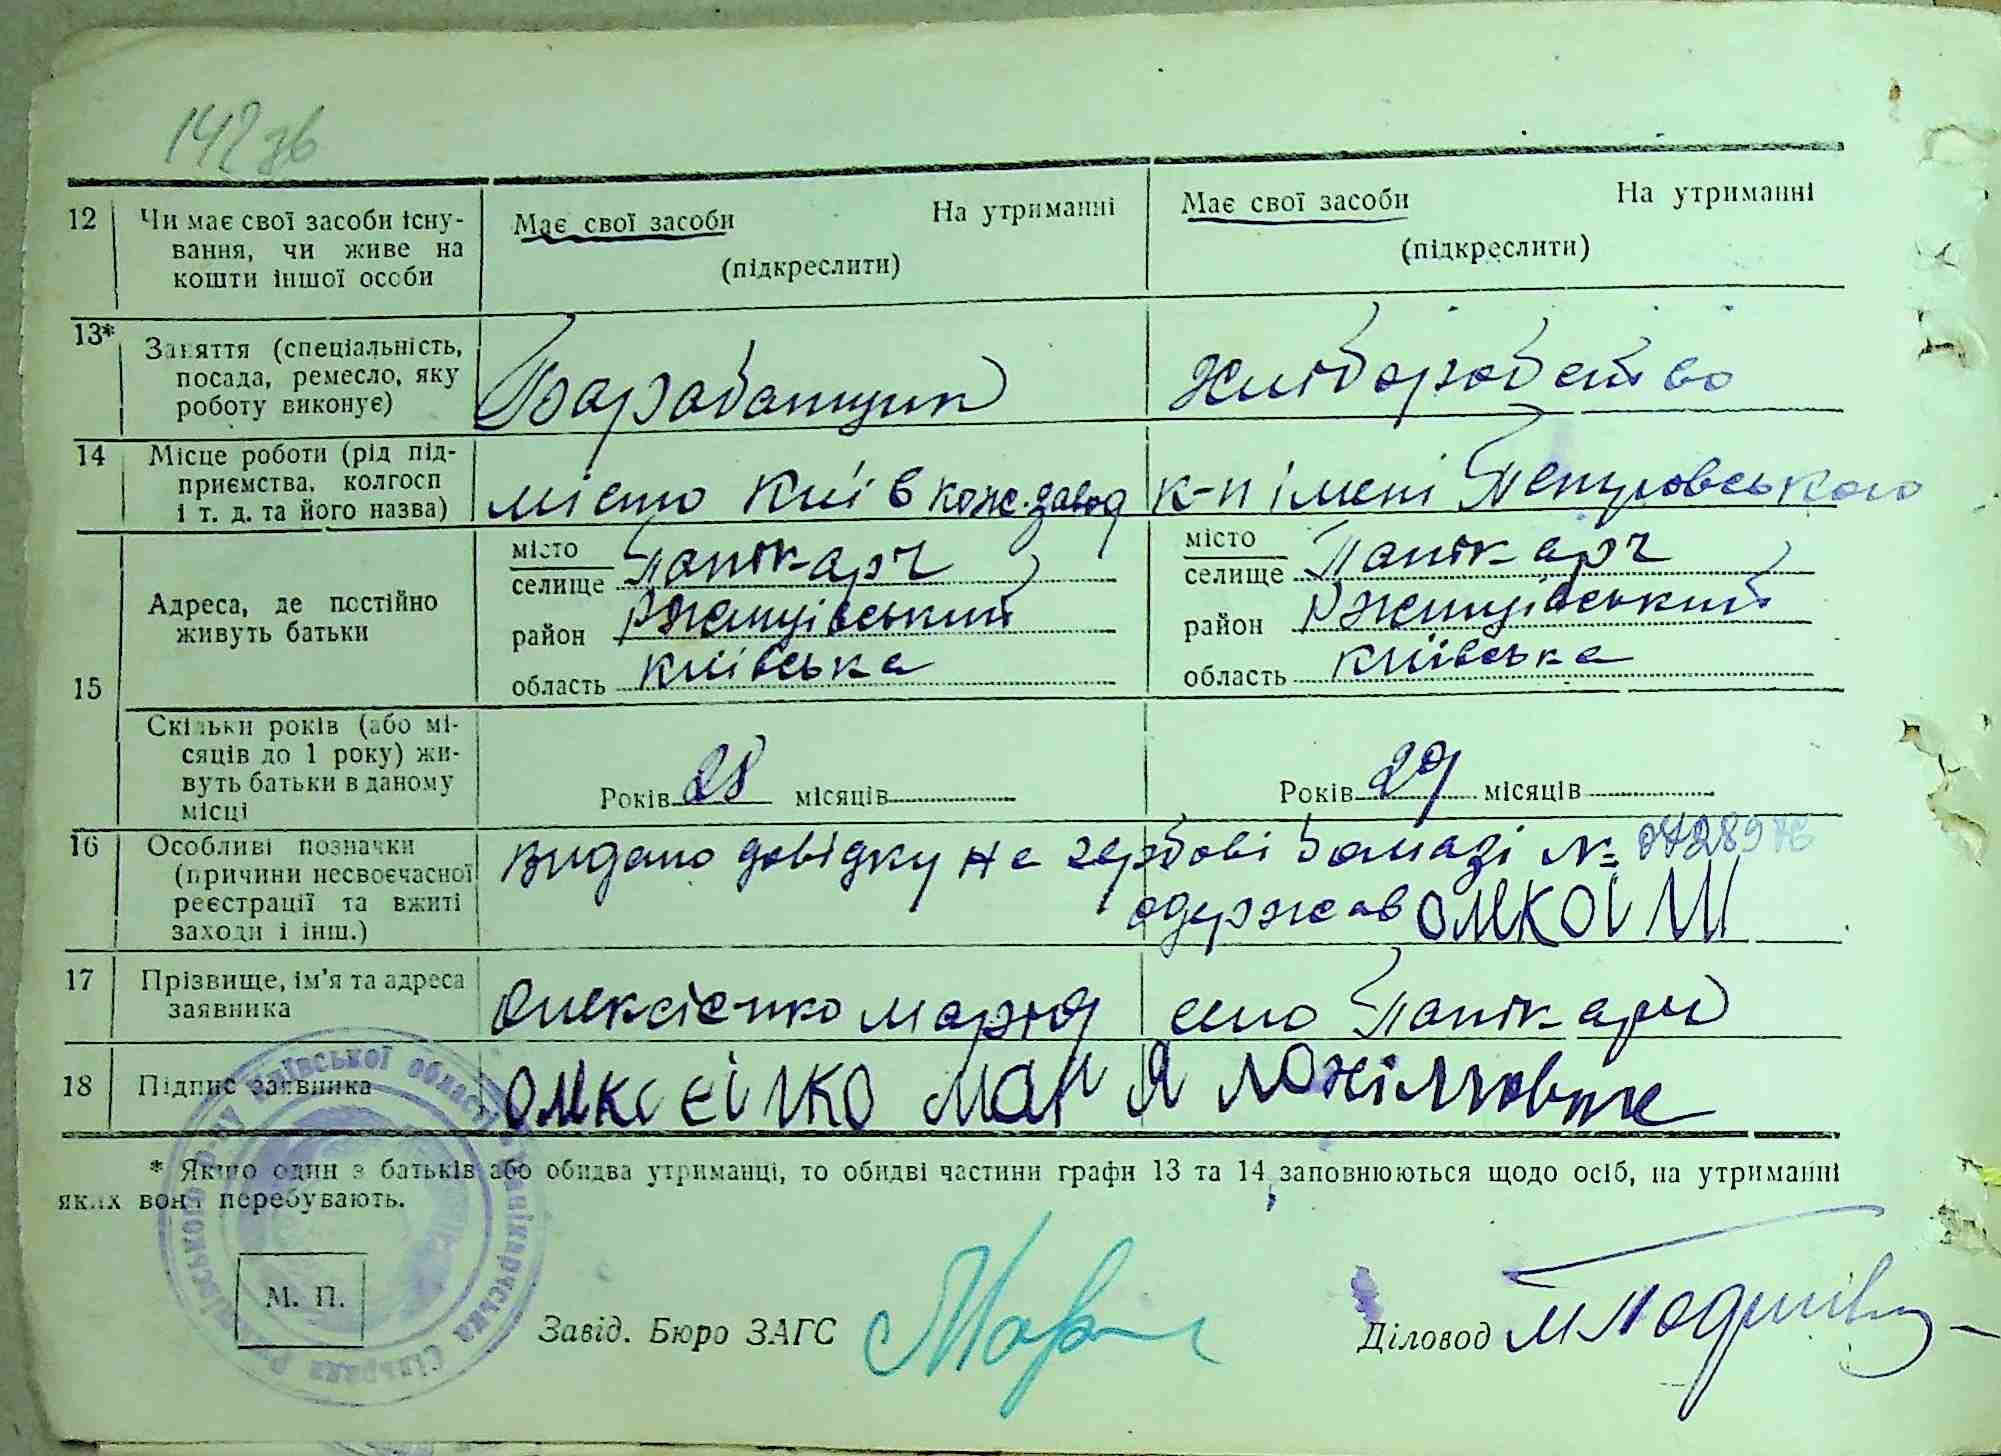 142зв
12 Чи має свої засоби існу-
вання, чи живе на
кошти іншої особи
Має свої засоби На утриманні
(підкреслити)
Має свої засоби На утриманні
(підкреслити)
13* Заняття (спеціальність,
посада, ремесло, яку
роботу виконує)
Барабанщик
Хліборобство
14 Місце роботи (рід під-
приємства, колгосп
і т. д. та його назва)
місто Київ кож.завод
к-п імені Петровського
15 Адреса, де постійно
живуть батьки
місто
селище Папікарч
район Ржищівський
область київська
місто
селище Папікарч
район Ржищівський
область київська
Скільки років (або мі-
сяців до 1 року) жи-
вуть батьки в даному
місці
Років 28 місяців
Років 29 місяців
16 Особливі позначки
(причини несвоєчасної
реєстрації та вжиті
заходи і інш.)
видано довідку на гербові бомазі №
одержав
17 Прізвище, ім'я та адреса
заявника
Олексієнко Марія село Папікарчі
18 Підпис заявника
* Якщо один з батьків або обидва утриманці, то обидві частини графи 13 та 14 заповнюються щодо осіб, на утриманні
яких вони перебувають.
М. П.
Завід. Бюро ЗАГС
Діловод
Київської області
Сільрада